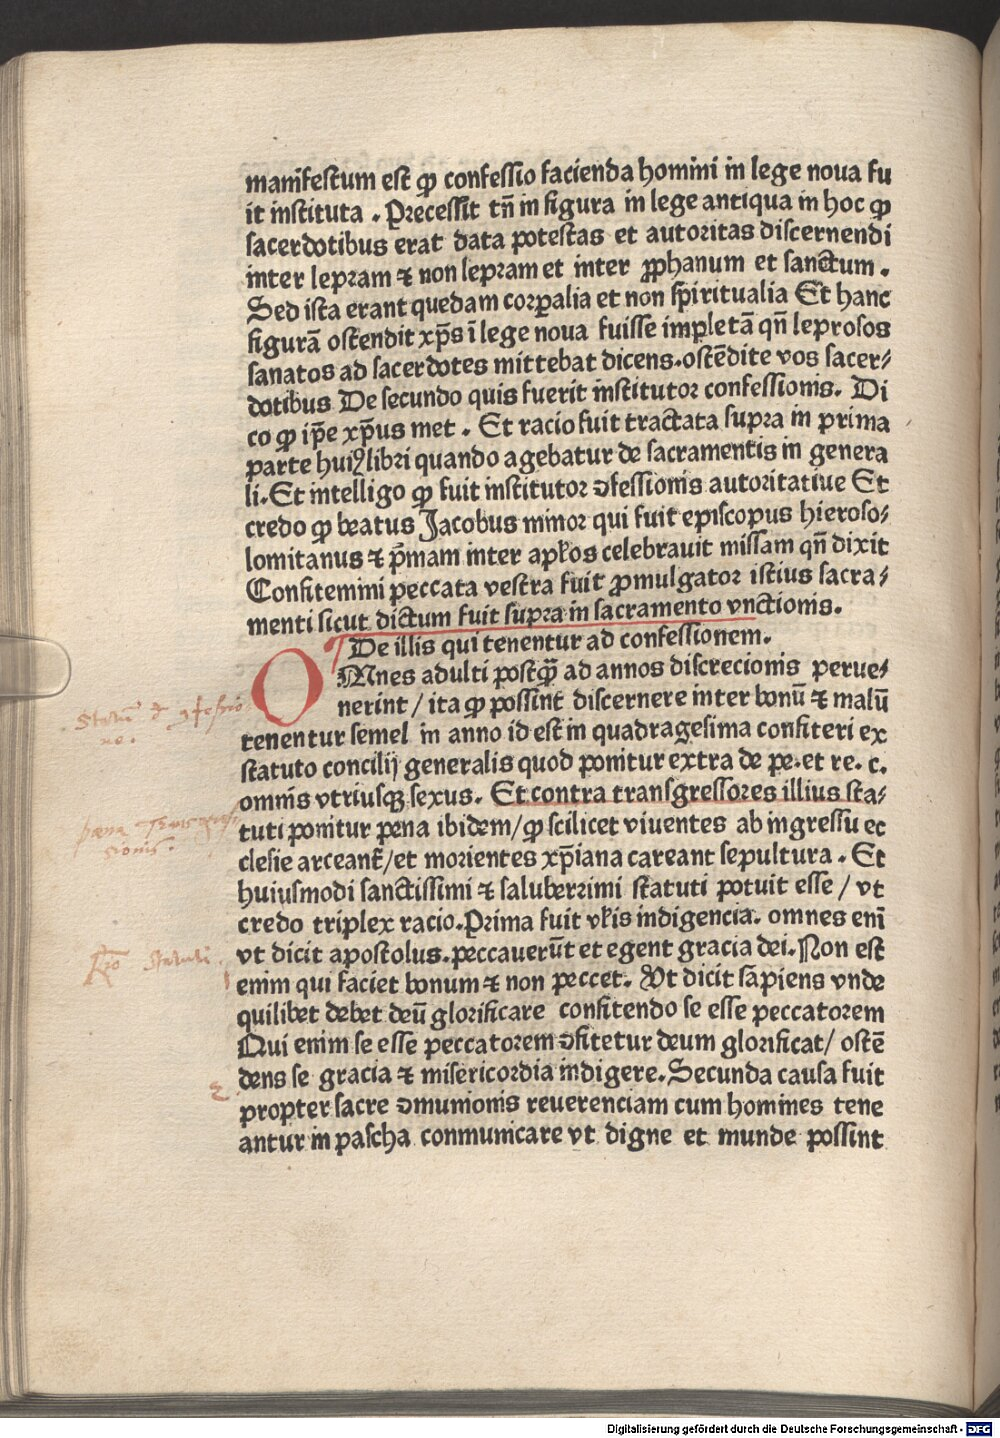 manifestum est ꝙ confessio facienda homini in lege noua fu
it instituta . Precessit tn̄ in figura in lege antiqua in hoc ꝙ
sacerdotibus erat data potestas et autoritas discernendi
inter lepram ⁊ non lepram et inter ꝓphanum et sanctum .
Sed ista erant quedam corꝑalia et non spiritualia Et hanc
figurā ostendit xp̄s ī lege noua fuisse impletā qn̄ leprosos
sanatos ad sacerdotes mittebat dicens.ostēdite vos sacer⸗
dotibus De secundo quis fuerit institutor confessionis. Di
co ꝙ ip̄e xp̄us met . Et racio fuit tractata supra in prima
parte huiꝰ libri quando agebatur de sacramentis in genera
li.Et intelligo ꝙ fuit institutor ꝯfessionis autoritatiue Et
credo ꝙ beatus Jacobus minor qui fuit episcopus hieroso⸗
lomitanus ⁊ p̄mam inter apłos celebrauit missam qn̄ dixit
Confitemini peccata vestra fuit ꝓmulgator istius sacra⸗
menti sicut dictum fuit supra in sacramento vnctionis.
De illis qui tenentur ad confessionem.
OMnes adulti postꝙ̄ ad annos discrecionis perue⸗
nerint / ita ꝙ possint discernere inter bonū ⁊ malū
Statu͂ d ꝯfessio
tenentur semel in anno id est in quadragesima confiteri ex
ne.
statuto concilij generalis quod ponitur extra de pe.et re. c.
omnis vtriusqꝫ sexus. Et contra transgressores illius sta⸗
tuti ponitur pena ibidem/ꝙ scilicet viuentes ab ingressu ec
pena
clesie arceant᷑/et morientes xp̄iana careant sepultura . Et
huiusmodi sanctissimi ⁊ saluberrimi statuti potuit esse / vt
credo triplex racio.Prima fuit vłis indigencia. omnes eni̅
vt dicit apostolus.peccauerūt et egent gracia dei.Non est
Rō Statuti.
enim qui faciet bonum ⁊ non peccet. Vt dicit sapiens vnde
1
quilibet debet deū glorificare confitendo se esse peccatorem
Qui enim se esse peccatorem ꝯfitetur deum glorificat/ ostē
dens se gracia ⁊ misericordia indigere.Secunda causa fuit
2
propter sacre ꝯmunionis reuerenciam cum homines tene
antur in pascha conmunicare vt digne et munde possint
Digitalisierung gefördert durch die Deutsche Forschungsgemeinschaft - DFG